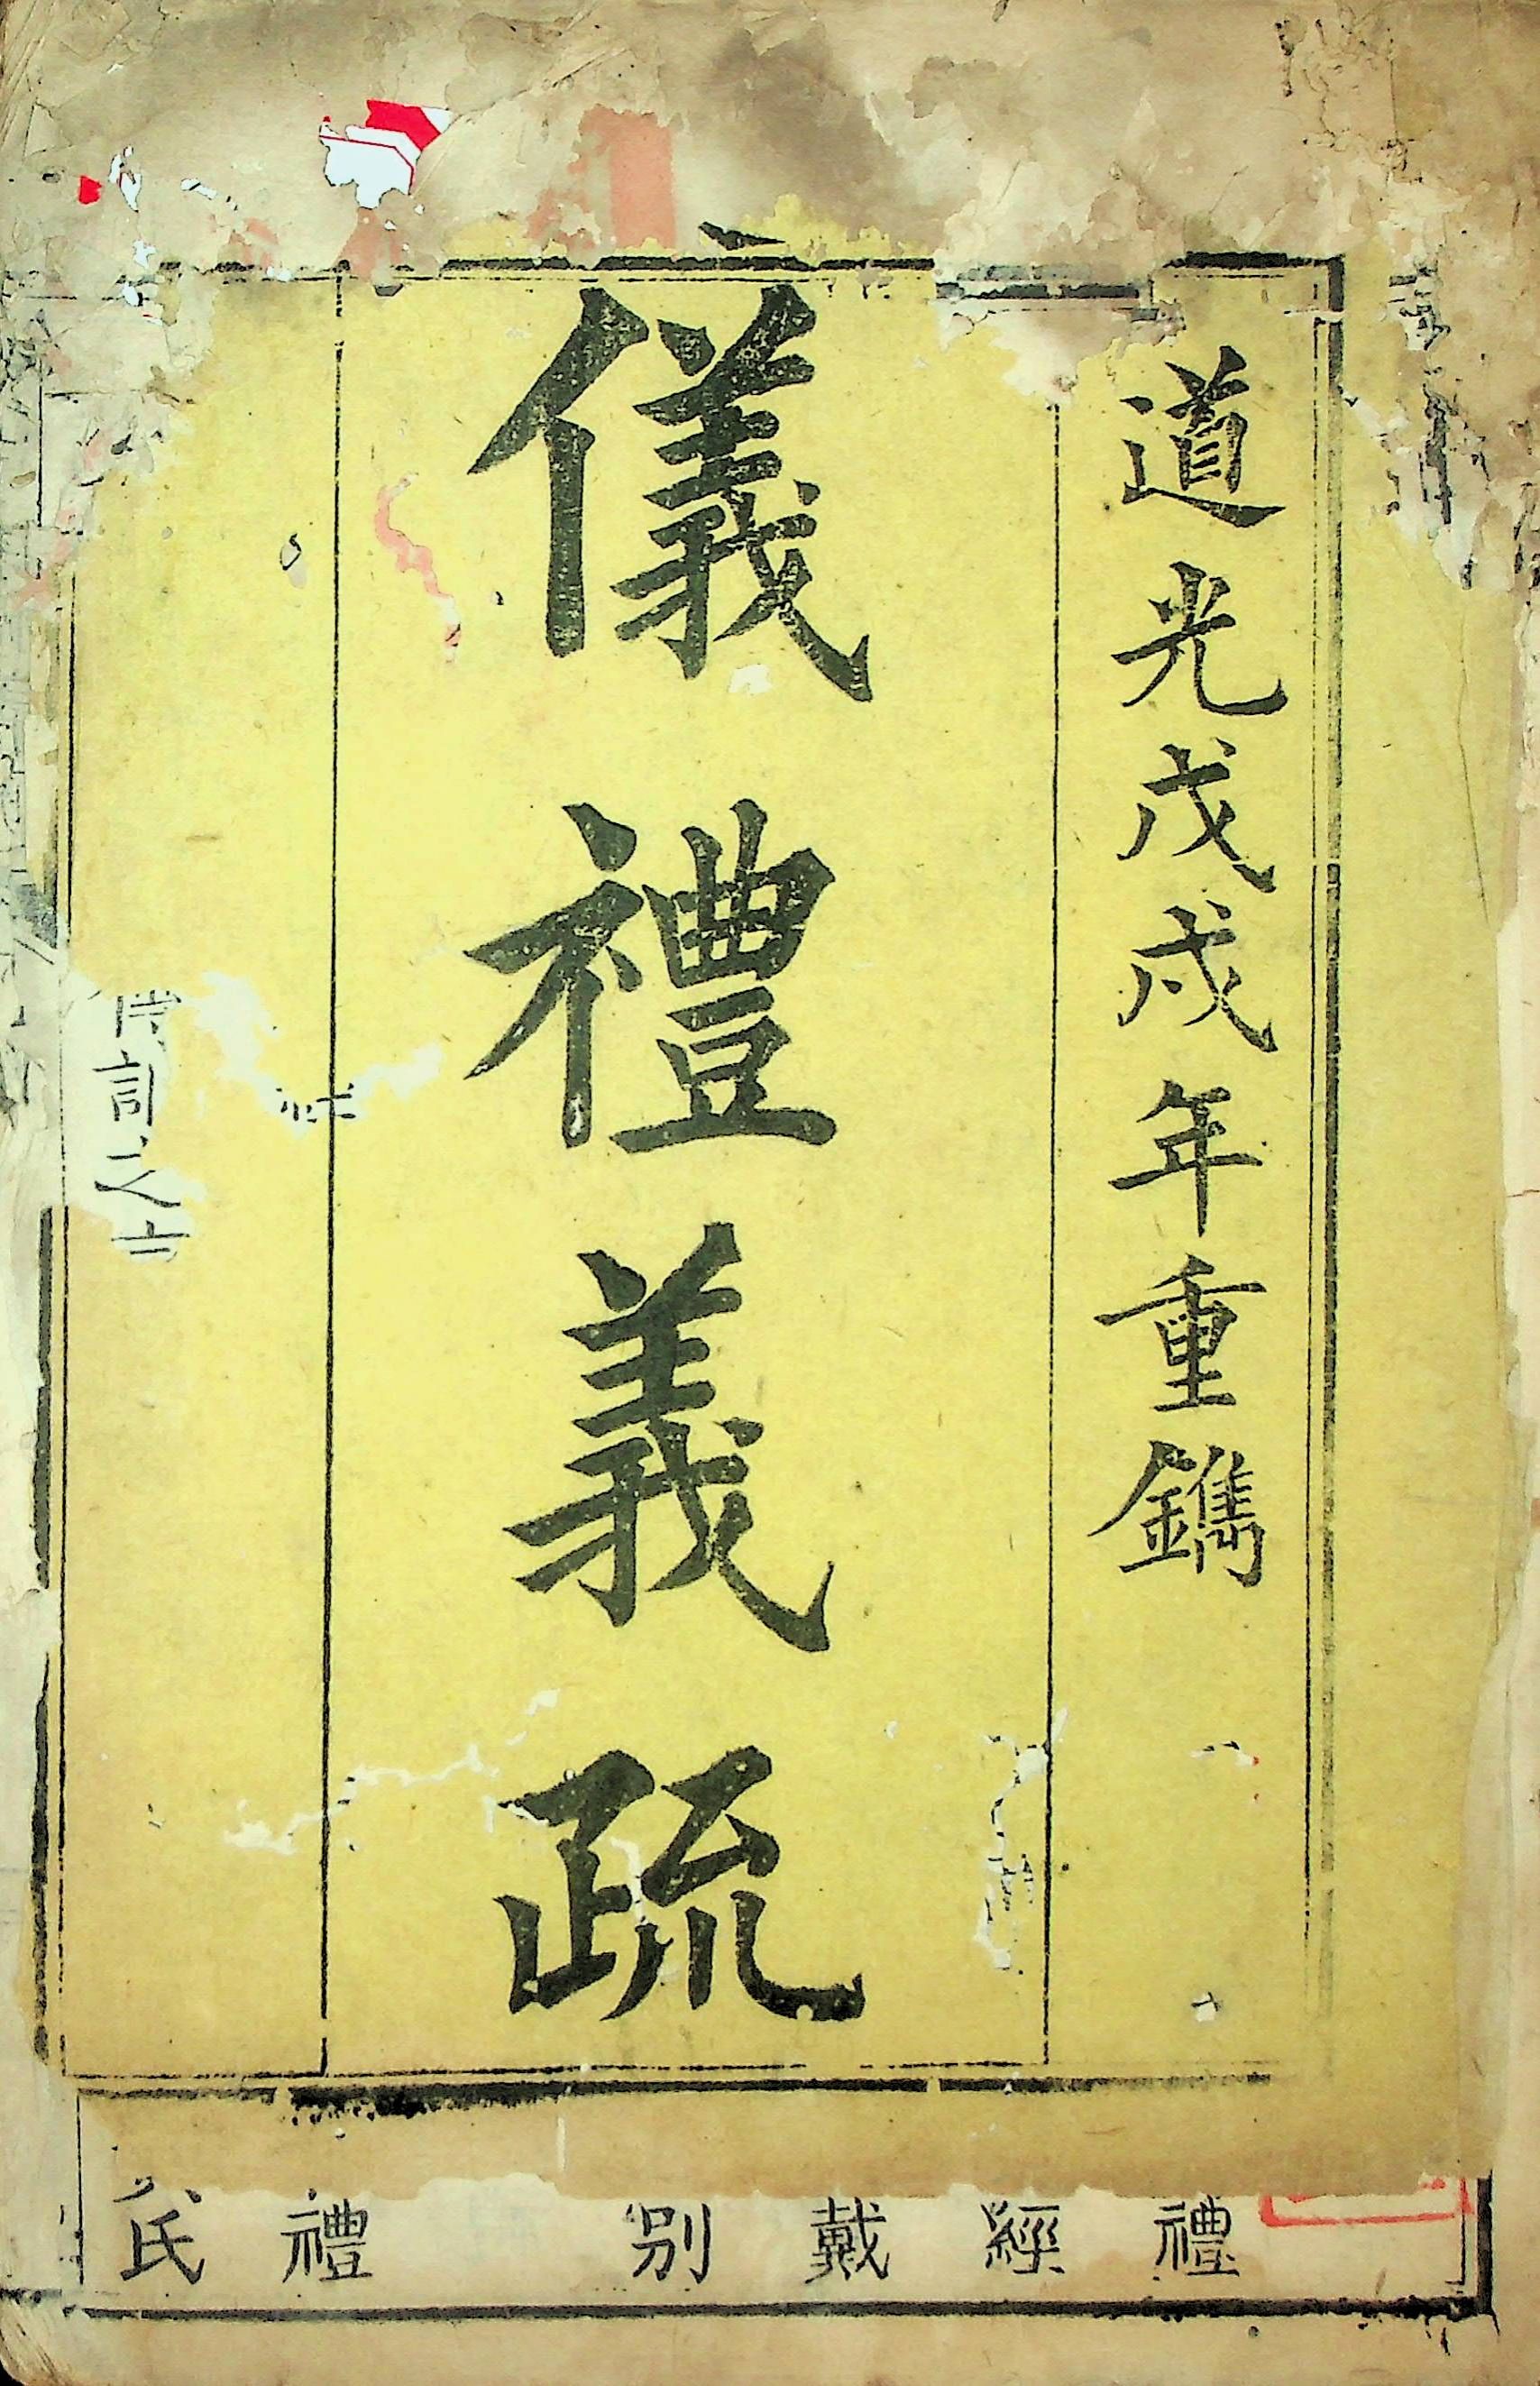 道光戊戌年重鐫
儀禮義疏
禮
經
戴
別
禮
氏